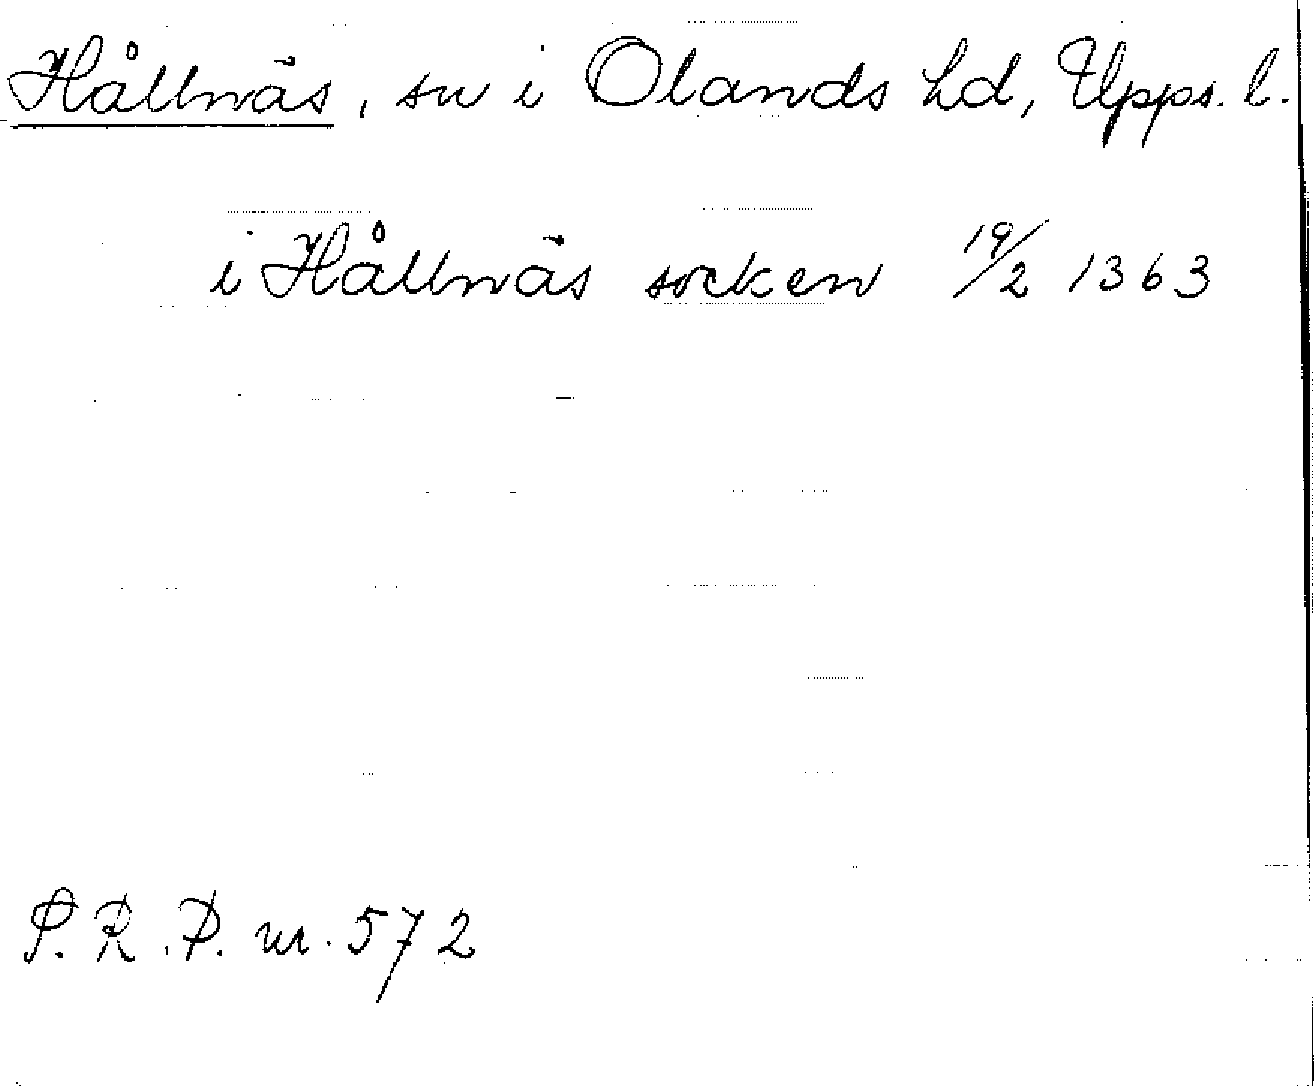 Hållnäs, sn i Olands hd, Upps. l.
i Hållnäs socken 19/2 1363
S.R.P. nr. 572